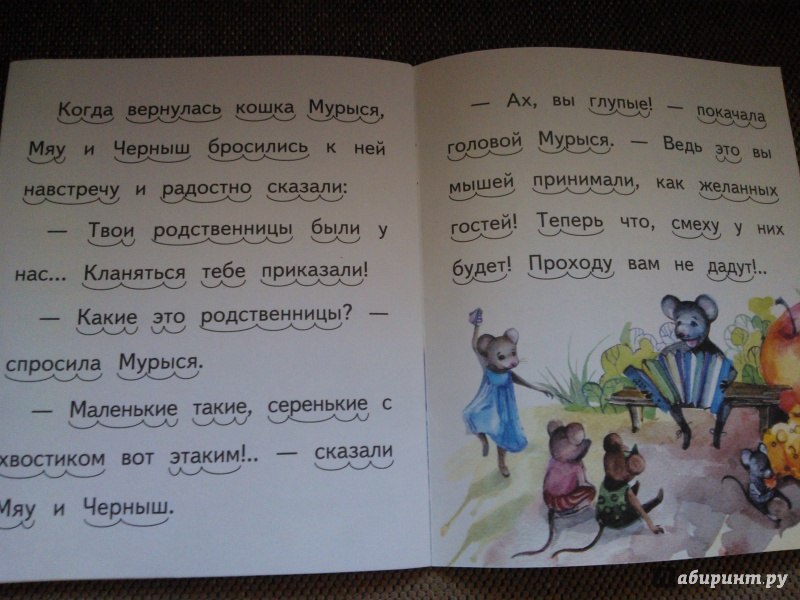 Когда вернулась кошка Мурыся,
Мяу и Черныш бросились к ней
навстречу и радостно сказали:
— Твои родственницы были у
нас... Кланяться тебе приказали!
— Какие это родственницы? —
спросила Мурыся.
— Маленькие такие, серенькие с
хвостиком вот этаким!.. — сказали
Мяу и Черныш.
— Ах, вы глупые! — покачала
головой Мурыся. — Ведь это вы
мышей принимали, как желанных
гостей! Теперь что, смеху у них
будет! Проходу вам не дадут!..
лабиринт.ру